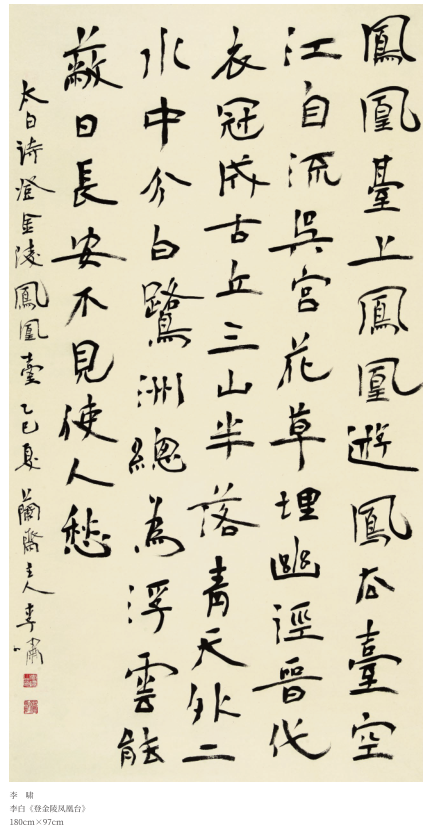 鳳凰臺上鳳凰遊鳳去臺空
江自流吳宮花草埋幽徑晉代
衣冠成古丘三山半落青天外二
水中分白鷺洲總為浮雲能
蔽日長安不見使人愁
太白詩澄金陵鳳凰臺 乙巳夏 蘭齋主人李嘯
李 啸
李白《登金陵凤凰台》
180cm×97cm